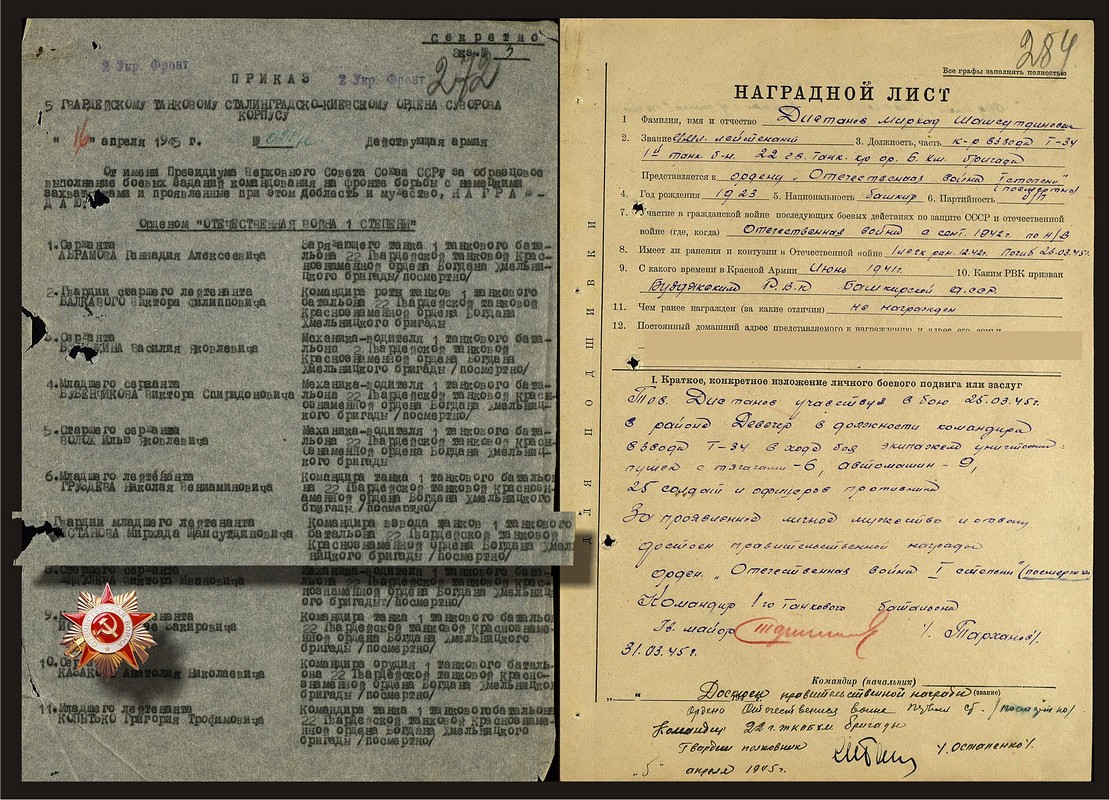 СЕКРЕТНО
Экз.№ 3
272
2 Укр. Фронт
ПРИКАЗ
2 Укр. Фронт
5 ГВАРДЕЙСКОМУ ТАНКОВОМУ СТАЛИНГРАДСКО-КИЕВСКОМУ ОРДЕНА СУВОРОВА
КОРПУСУ
" 16 " апреля 1945 г. № Действующая армия
От имени Президиума Верховного Совета Союза ССР, за образцовое
выполнение боевых заданий командования на фронте борьбы с немецкими
захватчиками и проявленные при этом доблесть и мужество, НАГРАЖ-
ДАЮ:
Орденом "ОТЕЧЕСТВЕННАЯ ВОЙНА 1 СТЕПЕНИ"
1. Сержанта
АБРАМОВА Геннадия Алексеевича
Заряжающего танка 1 танкового бата-
льона 22 Гвардейской танковой Крас-
нознаменной ордена Богдана Хмельни-
цкого бригады/посмертно/
2. Гвардии старшего лейтенанта
БАЛКАВОГО Виктора Филипповича
Командира роты танков 1 танкового
батальона 22 Гвардейской танковой
Краснознаменной ордена Богдана
Хмельницкого бригады
3. Сержанта
Василия Яковлевича
Механика-водителя 1 танкового бата-
льона 22 Гвардейской танковой
Краснознаменной ордена Богдана
Хмельницкого бригады/посмертно/
4. Младшего сержанта
БУБЕНЧИКОВА Виктора Спиридоновича
Механика-водителя 1 танкового бата-
льона 22 Гвардейской танковой Красн-
ознаменной ордена Богдана Хмельниц-
кого бригады/посмертно/
5. Старшего сержанта
ВОЛОХ Илью Яковлевича
Механика-водителя 1 танкового бата-
льона 22 Гвардейской танковой Красн-
ознаменной ордена Богдана Хмельниц-
кого бригады
6. Младшего лейтенанта
ГРУЗДЕВА Николая Вениаминовича
Командира танка 1 танкового батальон
на 22 Гвардейской танковой Краснозн-
аменной ордена Богдана Хмельницкого
бригады/посмертно/
Гвардии младшего лейтенанта
ИСТАНОВА Мирхада Шамсутдиновича
Командира взвода танков 1 танкового
батальона 22 Гвардейской танковой
Краснознаменной ордена Богдана Хмел
ницкого бригады/посмертно/
8. Старшего сержанта
Виктора Ивановича
льона 22 Гвардейской танковой Красн-
ознаменной ордена Богдана Хмельниц-
кого бригады/посмертно/
9.
Командира танка 1 танкового баталь-
она 22 Гвардейской танковой Краснозна-
менной ордена Богдана Хмельницкого
бригады/посмертно/
10.
КАЗАК Анатолия Николаевича
Командира орудия 1 танкового баталь-
она 22 Гвардейской танковой Красноз-
наменной ордена Богдана Хмельницко
бригады/посмертно/
11. Младшего лейтенанта
КОПЫТЬКО Григория Трофимовича
Командира танка 1 танкового баталь-
она 22 Гвардейской танковой Красноз-
наменной ордена Богдана Хмельницкого
бригады/посмертно/
ДЛЯ ПОДШИВКИ
284
Все графы заполнять полностью
НАГРАДНОЙ ЛИСТ
1 Фамилия, имя и отчество Дистанов Мирхад Шамсутдинович
2. Звание гв. мл. лейтенант 3. Должность, часть к-р взвода Т-34
1й танк. б-н. 22 гв. танк. кр. ор. Б. Хм. бригады
Представляется к ордену „Отечественная война I степени"
(посмертно)
4. Год рождения 1923 5. Национальность башкир 6. Партийность б/п
7. Участие в гражданской войне последующих боевых действиях по защите СССР и отечественной
войне (где, когда) Отечественная война с сент. 1942г. по н/в
8. Имеет ли ранения и контузии в Отечественной войне Погиб 26.03.45г.
9. С какого времени в Красной Армии Июнь 1941г. 10. Каким РВК призван
Буздякским Р.В.К Башкирской А.ССР
11. Чем ранее награжден (за какие отличия) не награжден
12. Постоянный домашний адрес представляемого к награждению и адрес его семьи
I. Краткое, конкретное изложение личного боевого подвига или заслуг
Тов. Дистанов участвуя в бою 25.03.45г.
в районе Девечер в должности командира
взвода Т-34 в ходе боя экипажем уничтожил:
пушек с тягачами -6, автомашин -9,
25 солдат и офицеров противника
За проявленное личное мужество и отвагу
достоин правительственной награды
орден. „Отечественная война I степени" (посмертно)
Командир 1го танкового батальона
Гв. майор /. Тарханов/.
31.03.45г.
Командир (начальник)
(звание)
Достоин правительственной награды
Ордена Отечественная война первой ст. /посмертно/
Командир 22 г.ткбхм. бригады
Гвардии полковник /.Остапенко/.
„5" апреля 1945г.